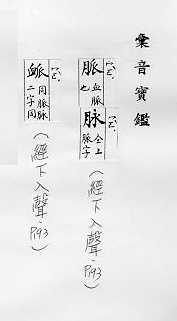 彙音寶鑑
脈
血脈也
脉
仝上
脈字
(經下入聲·P.193)
衇
同脈脉
二字同
(經下入聲·P.193)